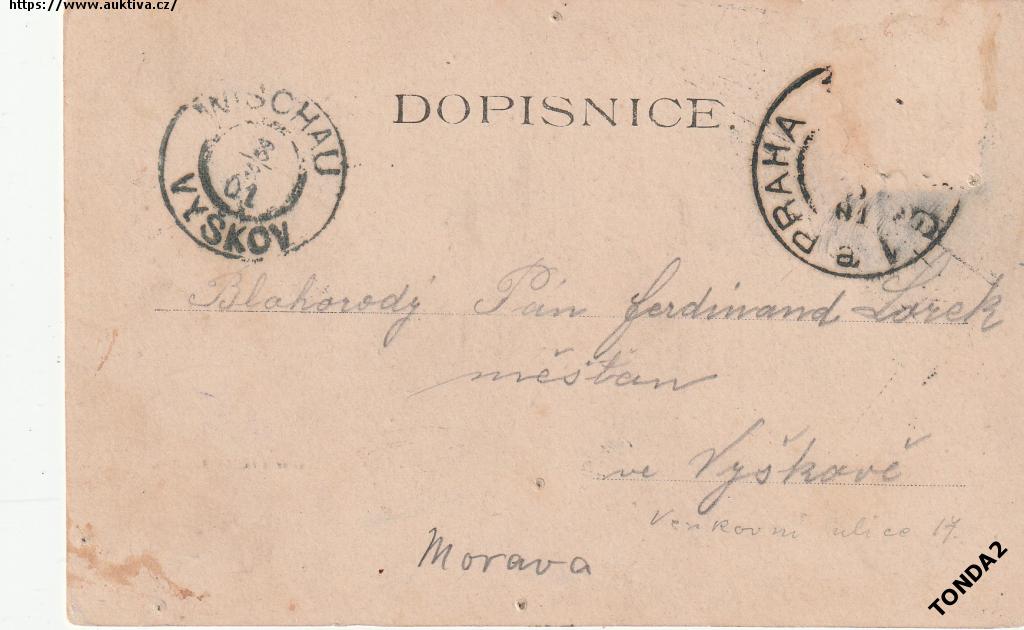 https://www.auktiva.cz/
WISCHAU
VYŠKOV
DOPISNICE.
PRAHA
Blahorodý Pán Ferdinand Lorek
měšťan
ve Vyškově
Venkovní ulice 17.
Morava
TONDA2